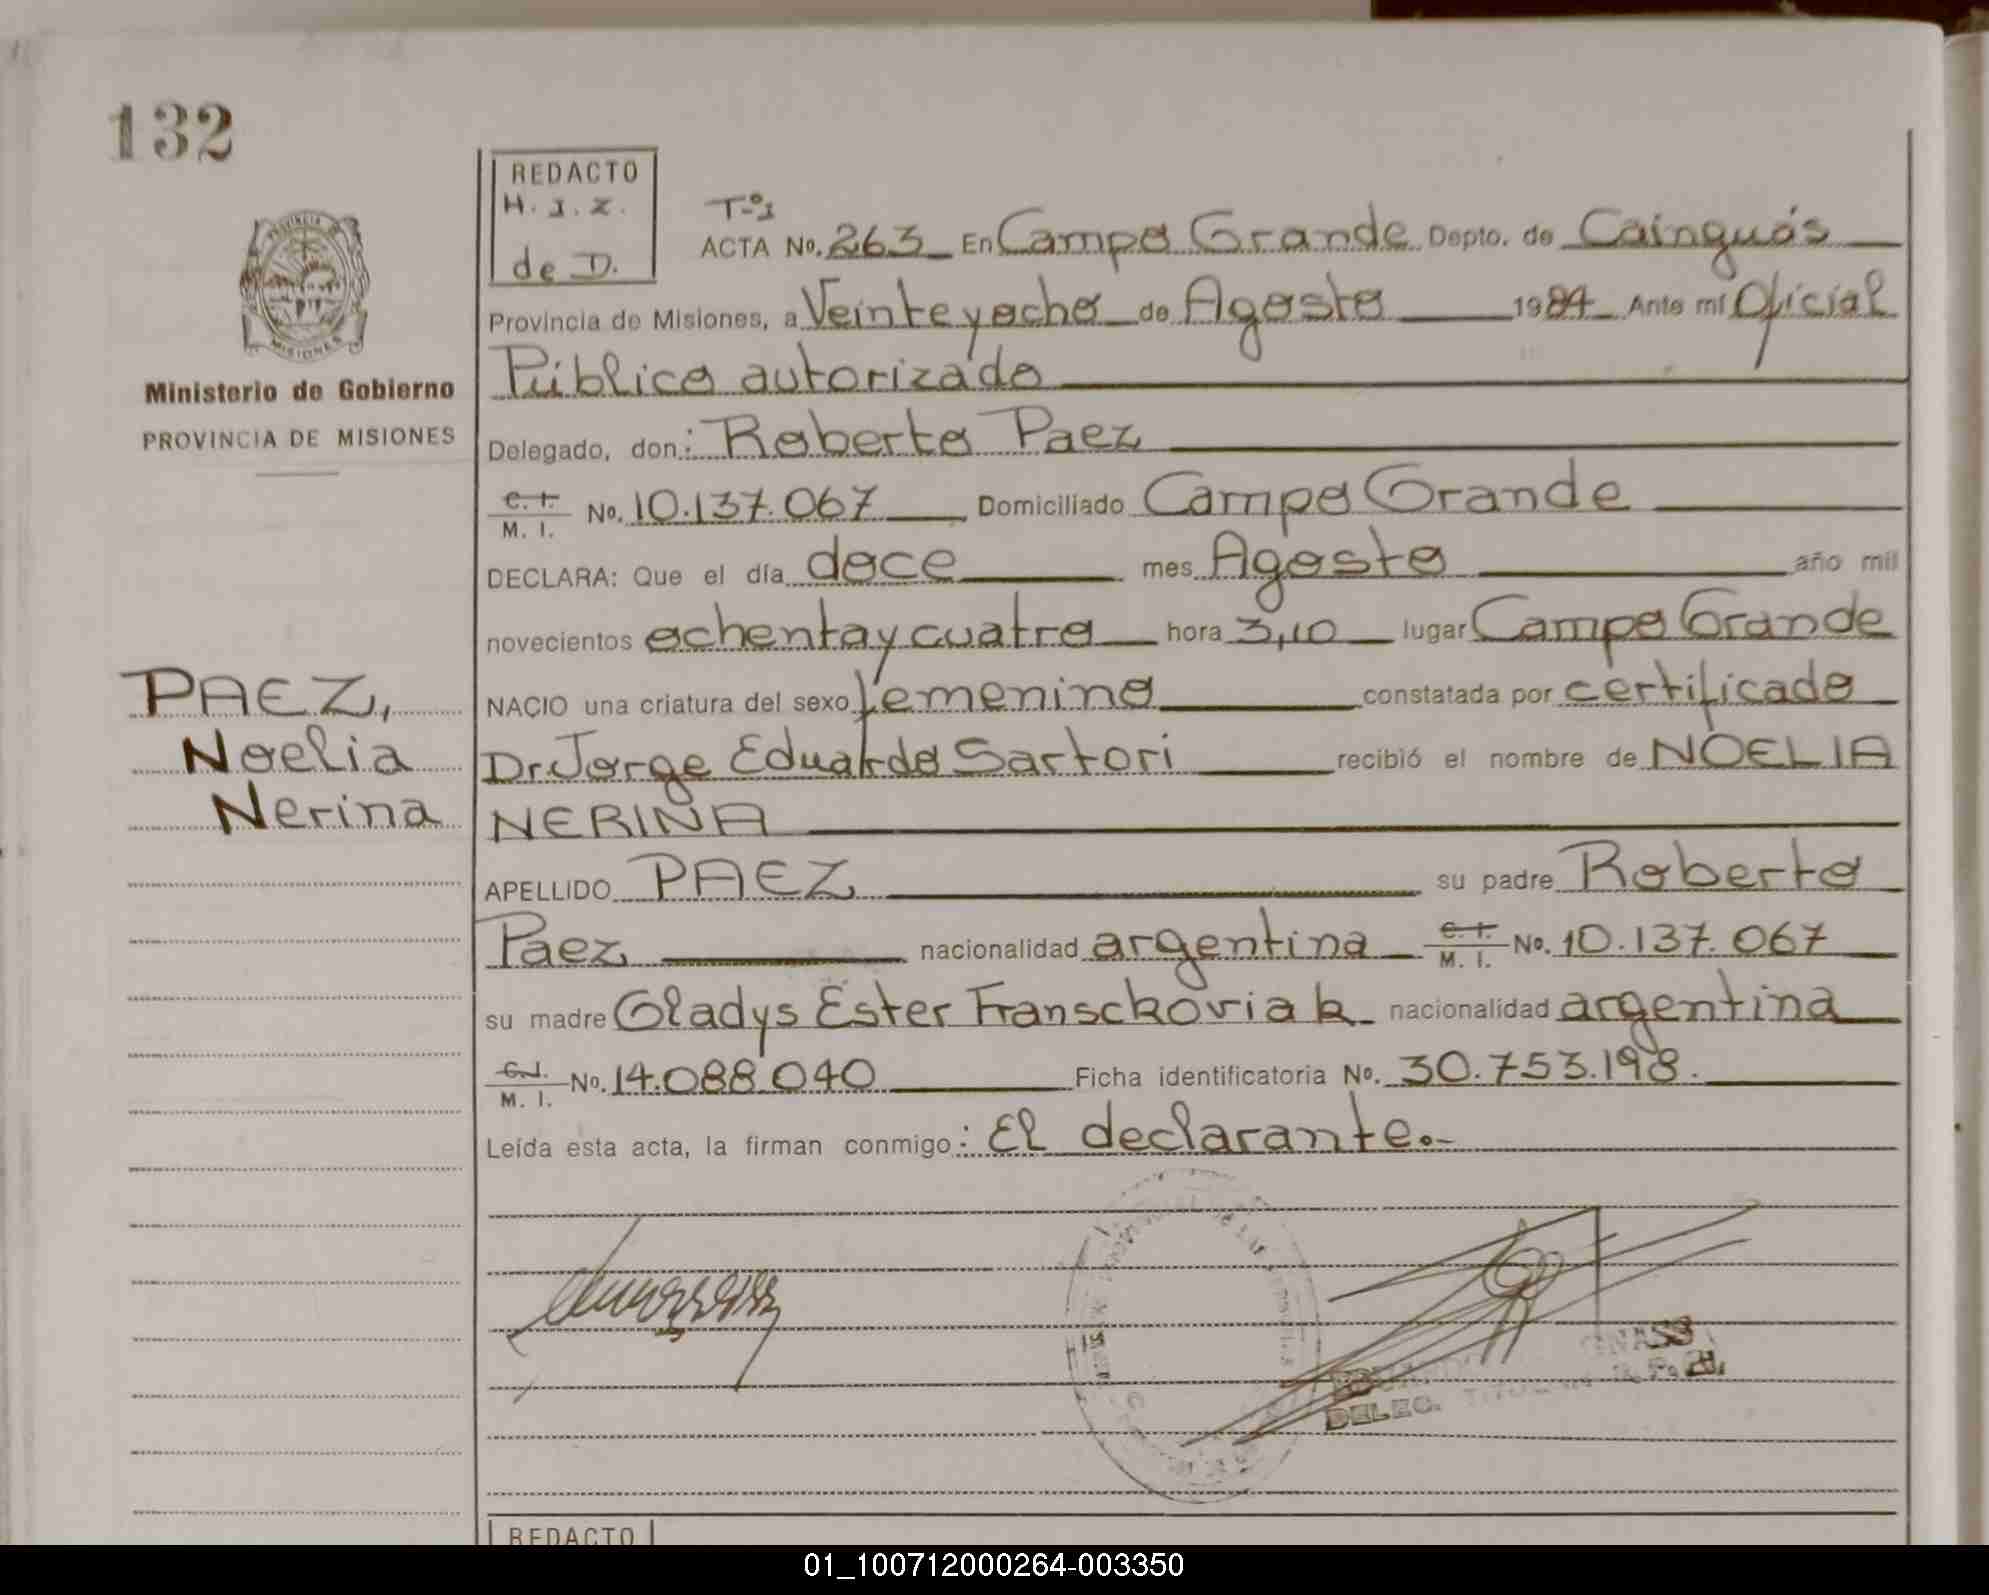 132
REDACTO
H. J. Z.
de D.
PROVINCIA DE
MISIONES
Ministerio de Gobierno
PROVINCIA DE MISIONES
Tº1
ACTA No. 263 En Campo Grande Depto. de Cainguás
Provincia de Misiones, a Veinte y ocho de Agosto 1984 Ante mí Oficial
Público autorizado
Delegado, don: Roberto Paez
C. I. / M. I. No. 10.137.067 Domiciliado Campo Grande
DECLARA: Que el día doce mes Agosto año mil
novecientos ochenta y cuatro hora 3,10 lugar Campo Grande
NACIO una criatura del sexo femenino constatada por certificado
Dr. Jorge Eduardo Sartori recibió el nombre de NOELIA
NERINA
PAEZ,
Noelia
Nerina
APELLIDO PAEZ su padre Roberto
Paez nacionalidad argentina C. I. / M. I. No. 10.137.067
su madre Gladys Ester Transckoviak nacionalidad argentina
C. I. / M. I. No. 14.088.040 Ficha identificatoria No. 30.753.198.
Leída esta acta, la firman conmigo: El declarante.-
DELEG.
REDACTO
01_100712000264-003350